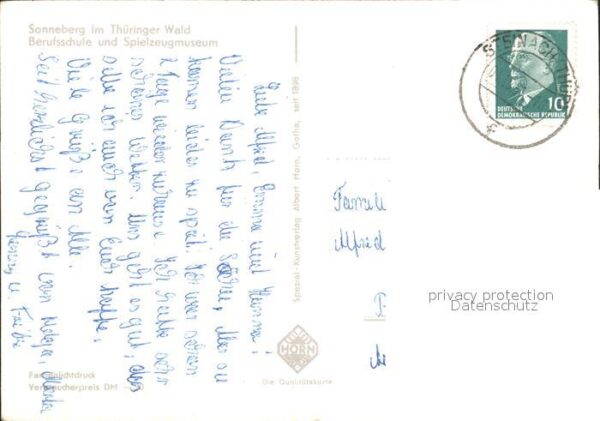 Sonneberg im Thüringer Wald
Berufsschule und Spielzeugmuseum
Liebe Alfred, Emma und Hanna!
Vielen Dank für die Sachen, aber sie
kamen leider zu spät. Ich war schon
2 Tage wieder zuhause. Ich hatte sehr
schönes Wetter. Uns geht es gut, das
selbe ich auch von Euch hoffe.
Viele Grüße an Alle.
Seid herzlichst gegrüßt von Helga,
Georg u.
Spezial-Kunstverlag Albert Horn, Gotha, seit 1898
HORN
Die Qualitätskarte
Verbraucherpreis DM
STEINACH
10
DEUTSCHE
DEMOKRATISCHE REPUBLIK
Familie
Alfred
privacy protection
Datenschutz